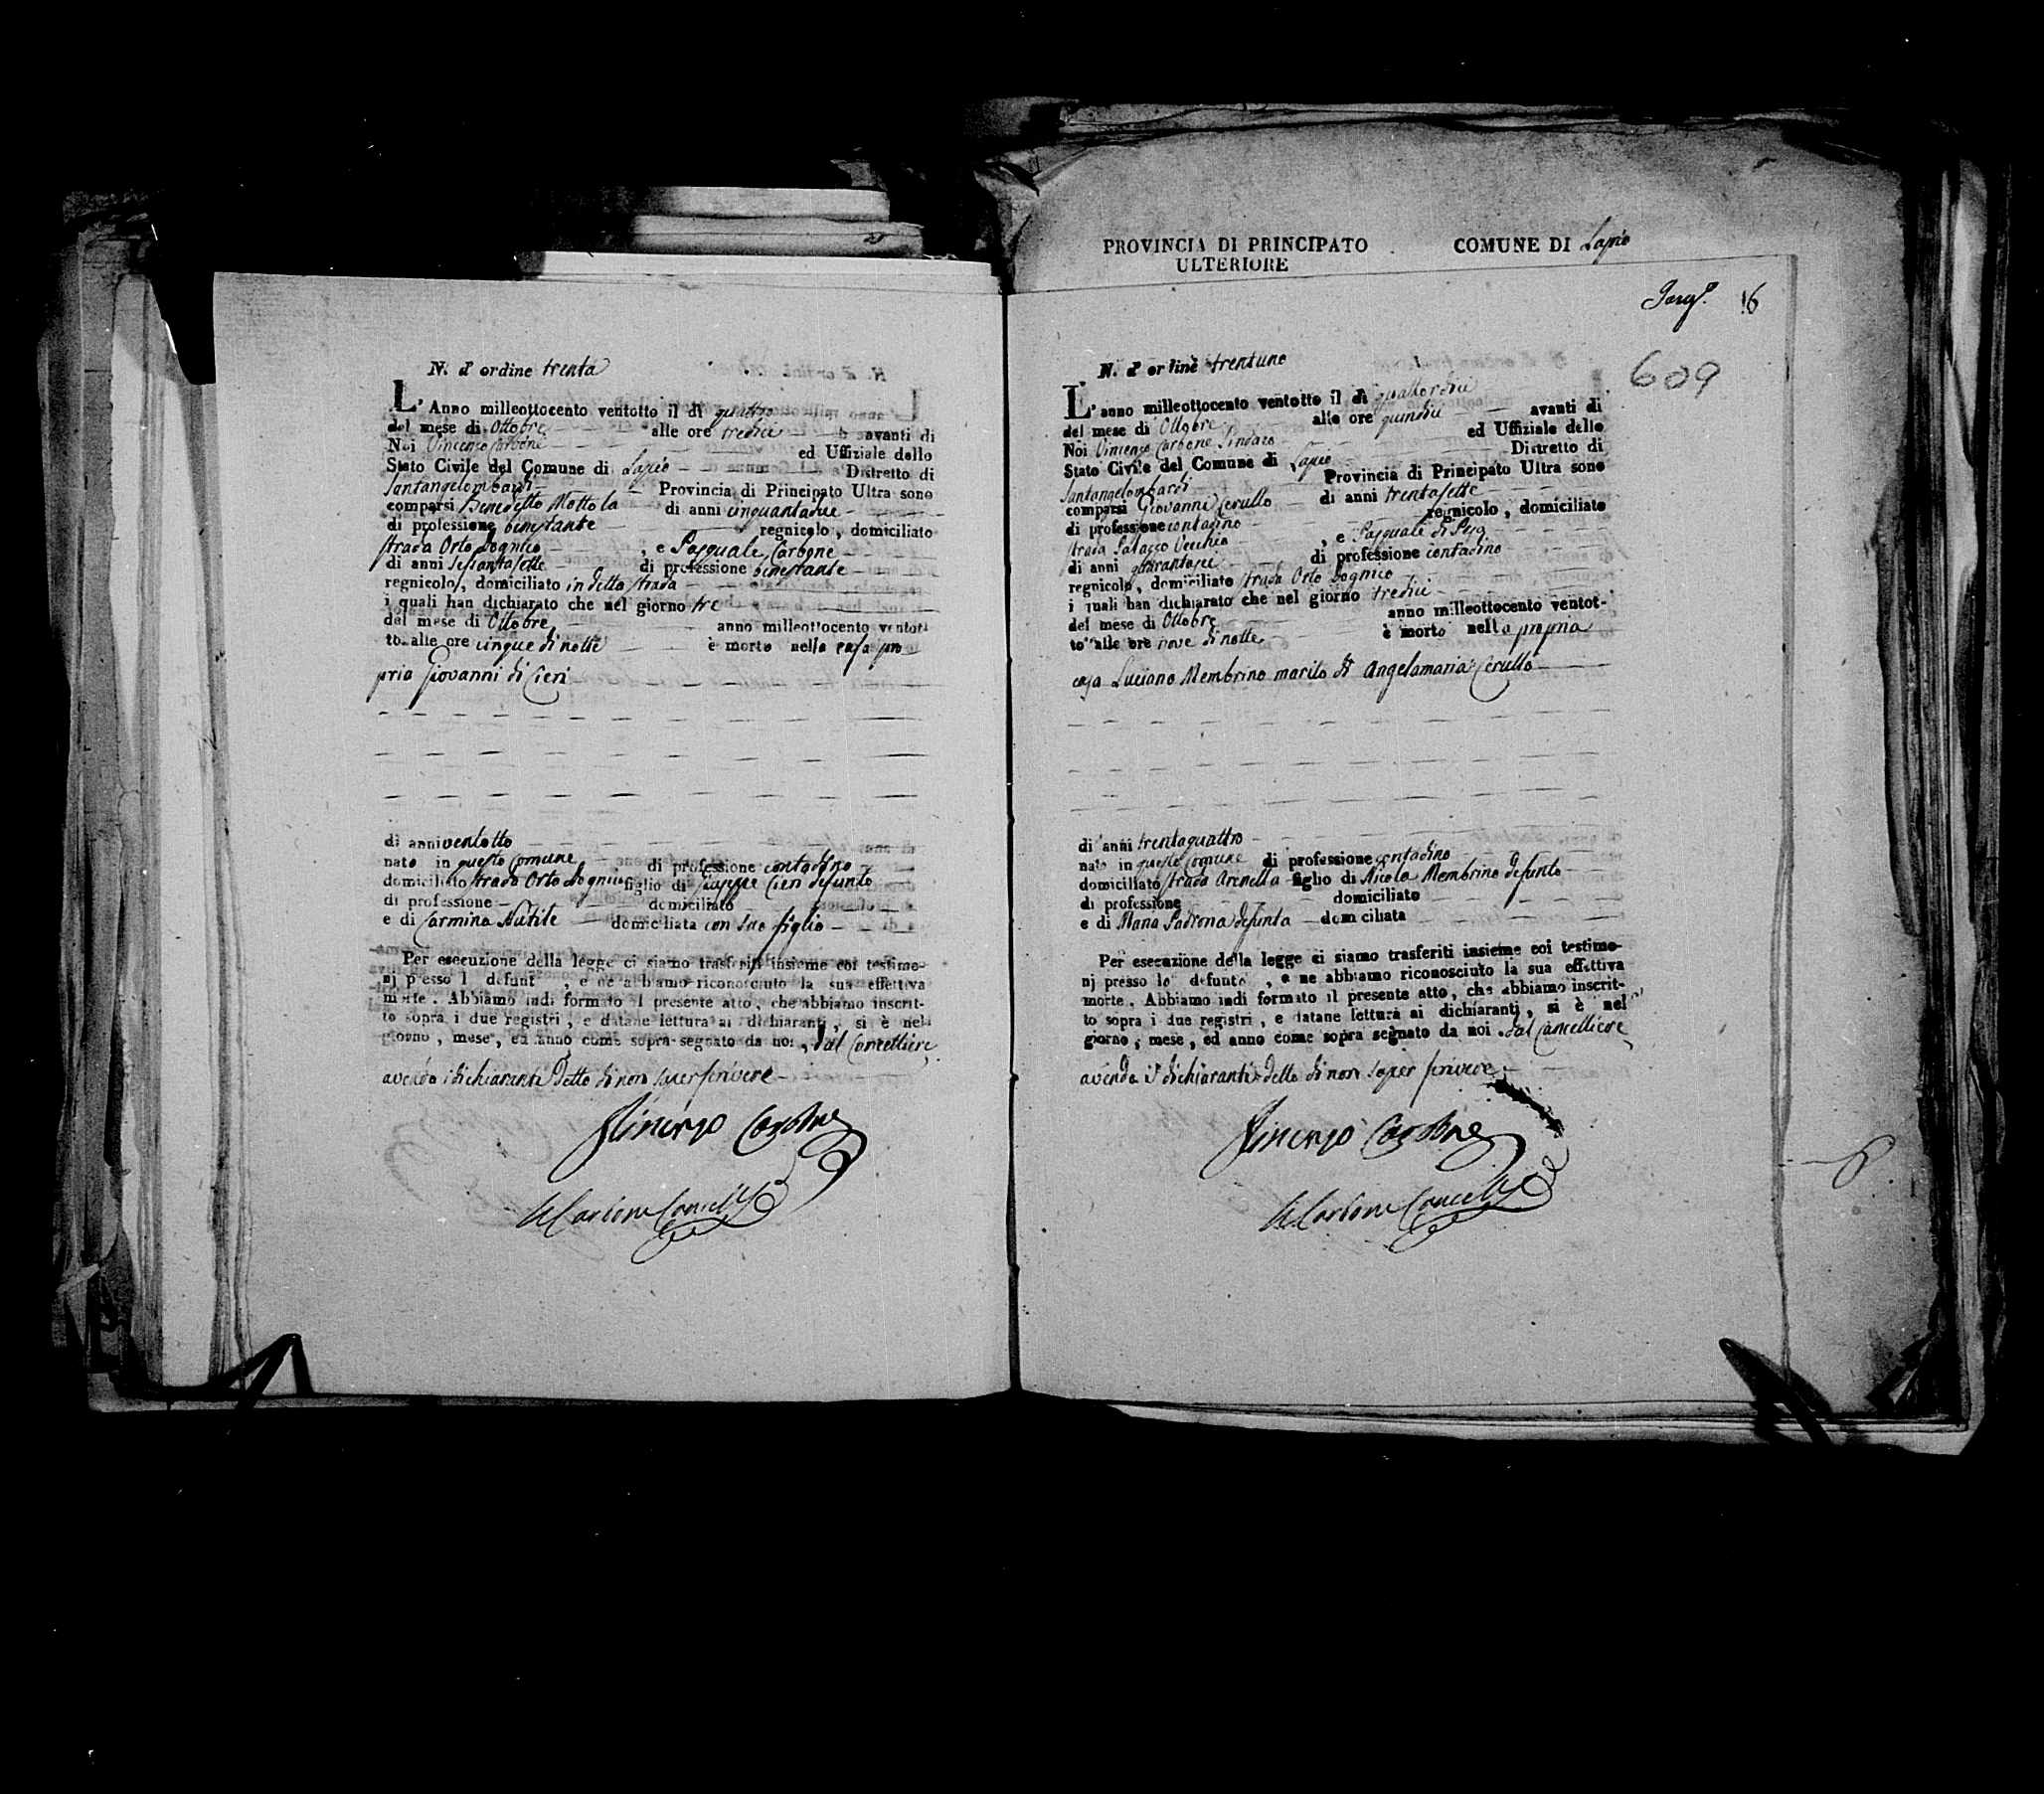 N. d' ordine trenta
L' Anno milleottocento ventotto il dì quattro
del mese di Ottobre alle ore tredici avanti di
Noi Vincenzo Carbone ed Uffiziale dello
Stato Civile del Comune di Lapio Distretto di
Santangelombardi Provincia di Principato Ultra sono
comparsi Benedetto Mottola di anni cinquantadue
di professione benestante regnicolo, domiciliato
strada Orto Dognico, e Pasquale Carbone
di anni sessantasette di professione benestante
regnicolo, domiciliato in detta strada
i quali han dichiarato che nel giorno tre
del mese di Ottobre anno milleottocento ventot
to alle ore cinque di notte è morto nella casa pro
pria Giovanni di Cieri
di anni ventotto
nato in questo Comune di professione contadino
domiciliato strada Orto Dognico figlio di Giuseppe Cieri defunto
di professione domiciliato
e di Carmina Nutile domiciliata con suo figlio
Per esecuzione della legge ci siamo trasferiti insieme coi testimo-
nj presso l defunt , e ne abbiamo riconosciuto la sua effettiva
morte. Abbiamo indi formato il presente atto, che abbiamo inscrit-
to sopra i due registri, e datane lettura ai dichiaranti, si è nel
giorno, mese, ed anno come sopra segnato da noi, dal Cancelliere
avendo i dichiaranti detto di non saper scrivere
Vincenzo Carbone
PROVINCIA DI PRINCIPATO COMUNE DI Lapio
ULTERIORE
16
609
N. d' ordine trentuno
L' anno milleottocento ventotto il dì quattordici
del mese di Ottobre alle ore quindici avanti di
Noi Vincenzo Carbone Sindaco ed Uffiziale dello
Stato Civile del Comune di Lapio Distretto di
Santangelombardi Provincia di Principato Ultra sono
comparsi Giovanni Cerullo di anni trentasette
di professione contadino regnicolo, domiciliato
strada Palazzo Vecchio, e Pasquale di Pisa
di anni quarantasei di professione contadino
regnicolo, domiciliato strada Orto Dognico
i quali han dichiarato che nel giorno tredici
del mese di Ottobre anno milleottocento ventot-
to alle ore nove di notte è morto nella propria
casa Luciano Membrino marito di Angelamaria Cerullo
di anni trentaquattro
nato in questo Comune di professione contadino
domiciliato strada Arenella figlio di Nicola Membrino defunto
di professione domiciliato
e di Maria Padrona defunta domiciliata
Per esecuzione della legge ci siamo trasferiti insieme coi testimo-
nj presso lo defunto , e ne abbiamo riconosciuto la sua effettiva
morte. Abbiamo indi formato il presente atto, che abbiamo inscrit-
to sopra i due registri, e datane lettura ai dichiaranti, si è nel
giorno, mese, ed anno come sopra segnato da noi, dal Cancelliere
avendo i dichiaranti detto di non saper scrivere
Vincenzo Carbone